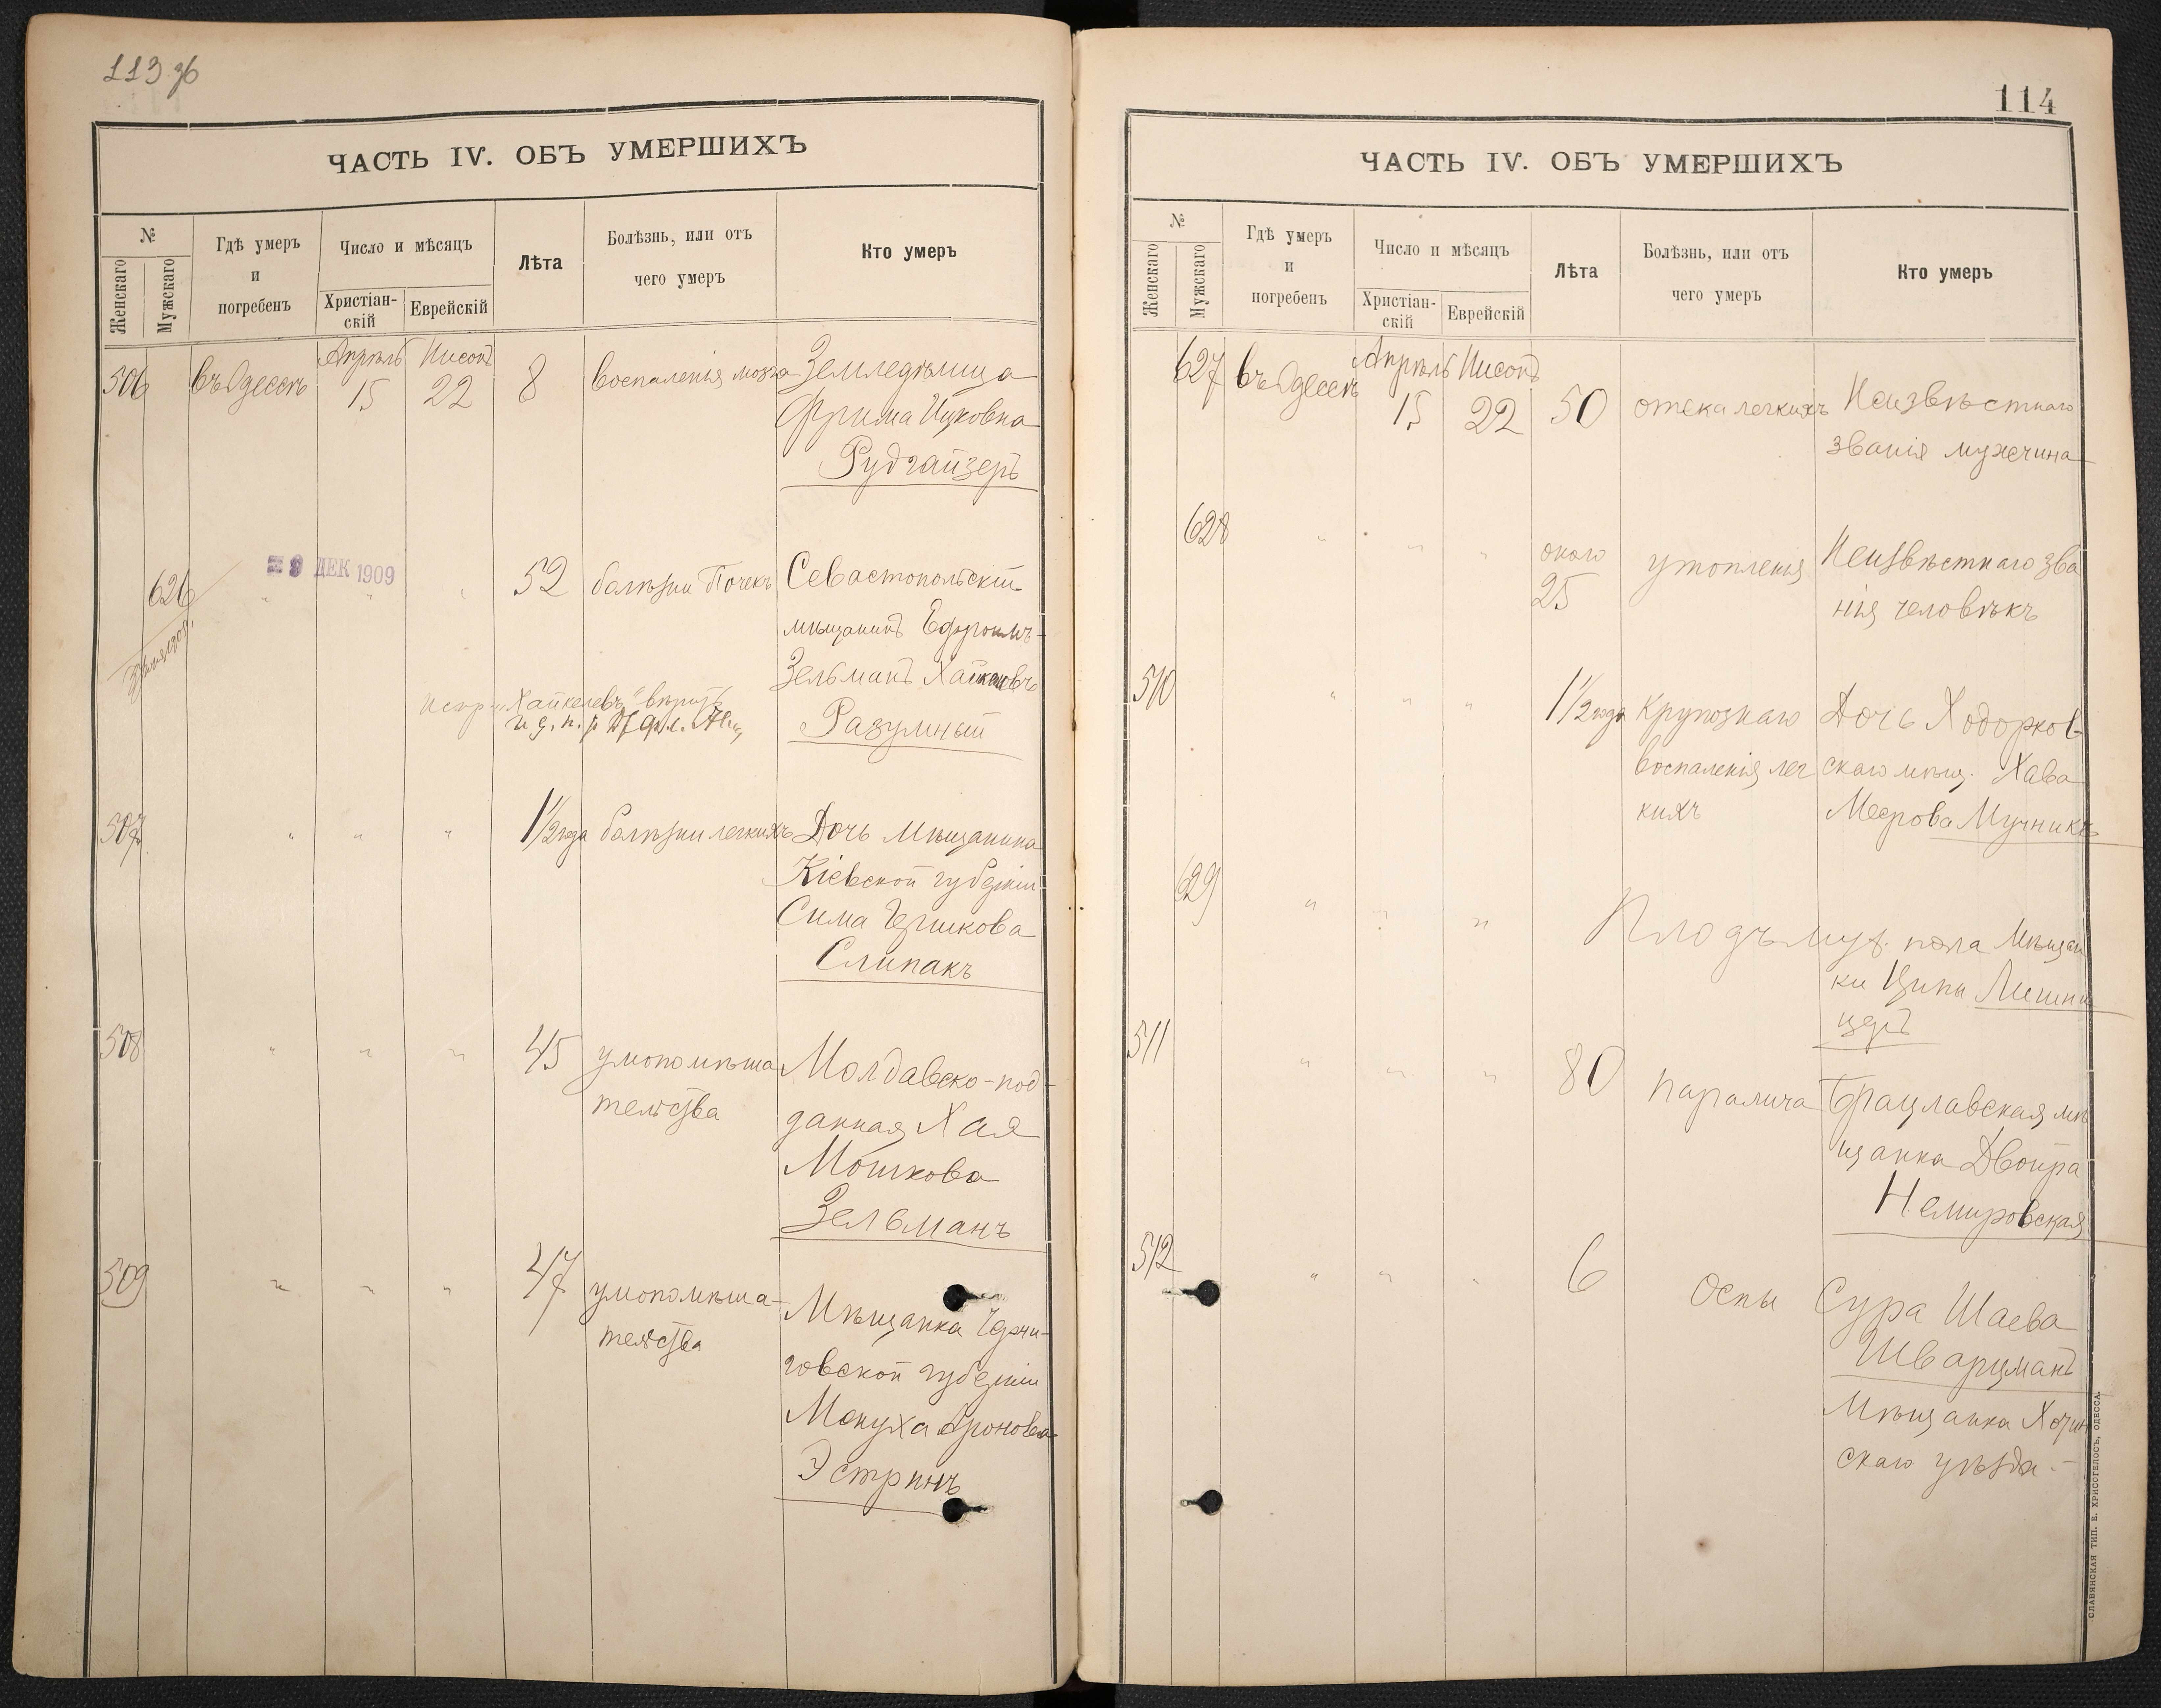 113
ЧАСТЬ IV. ОБЪ УМЕРШИХЪ
№
Женскаго
Мужскаго
Гдѣ умеръ
и
погребенъ
Число и мѣсяцъ
Христіан-
скій
Еврейскій
Лѣта
Болѣзнь, или отъ
чего умеръ
Кто умеръ
506 въ Одессѣ Апрѣль 15 Нисонъ 22 8 воспаленія мозга Земледѣлица
Фрима Ицковна
Рудгайзеръ
626 " " " 52 болѣзни Почекъ Севастопольскій
9 ДЕК 1909
мѣщанинъ Ефроимъ-
Зельманъ
Разумный
Хайкелевъ" вѣрить
507 " " " 1 1/2 года болѣзни легкихъ Дочь мѣщанина
Кіевской губерніи
Сима Гершкова
Слипакъ
508 " " " 45 умопомѣша Молдавско-под-
тельства данная Хая
Мошкова
Зельманъ
509 " " " 47 умопомѣша- Мѣщанка Черни-
тельства говской губерніи
Менуха Аронова
Эстринъ
114
ЧАСТЬ IV. ОБЪ УМЕРШИХЪ
№
Женскаго
Мужскаго
Гдѣ умеръ
и
погребенъ
Число и мѣсяцъ
Христіан-
скій
Еврейскій
Лѣта
Болѣзнь, или отъ
чего умеръ
Кто умеръ
627 въ Одессѣ Апрѣль 15 Нисонъ 22 50 отека легкихъ Неизвѣстнаго
званія мужчина
628 " " " около 25 утопленія Неизвѣстнаго зва
нія человѣкъ
510 " " " 1 1/2 года Крупознаго Дочь Ходорков-
воспаленія лег скаго мѣщ. Хава
кихъ Меерова Мучникъ
629 " " " Плодъ муж. пола мѣщан
ки Ципы Лишни
церъ
511 " " " 80 паралича Брацлавская мѣ
щанка Двойра
Немировская
512 " " " 6 Оспы Сура Шаева
Шварцманъ
Мѣщанка Хотин
скаго уѣзда.-
СЛАВЯНСКАЯ ТИП. Е. ХРИСОГЕЛОСЪ, ОДЕССА.